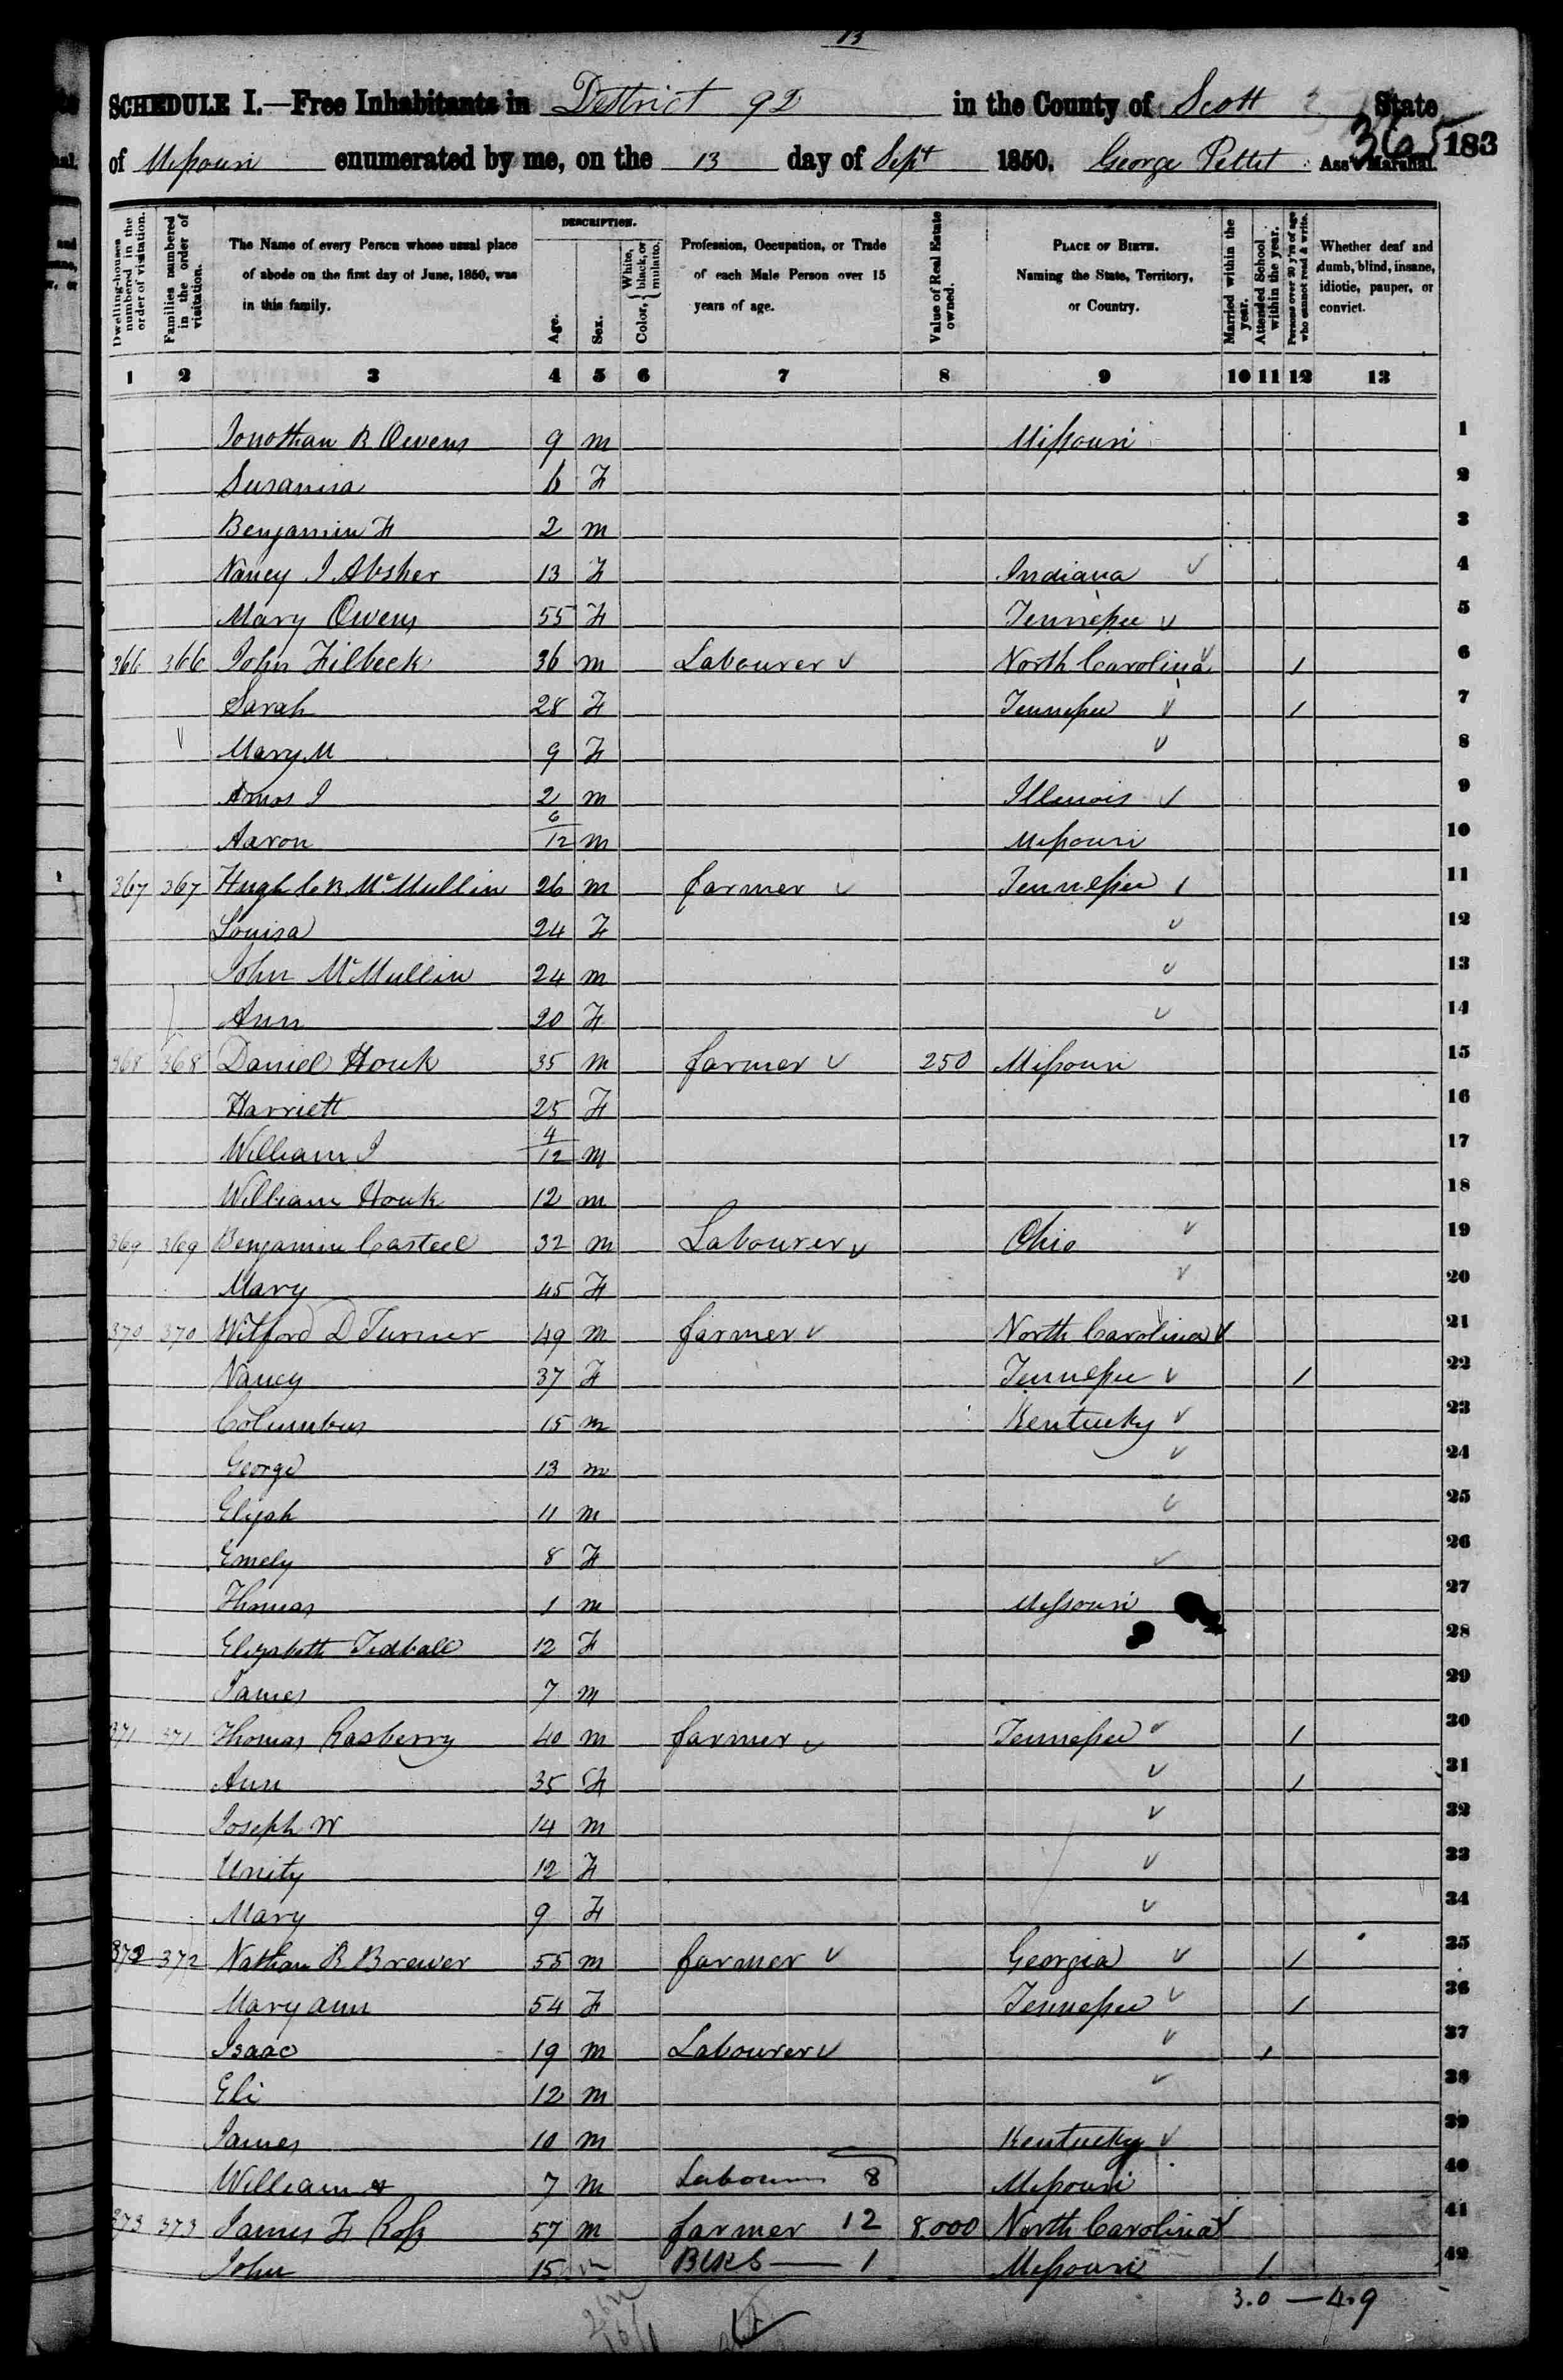 13
SCHEDULE I.—Free Inhabitants in District 92 in the County of Scott State
of Missouri enumerated by me, on the 13 day of Sept 1850. George Pettet Ass't Marshal.
365 183
Dwelling-houses numbered in the order of visitation.
Families numbered in the order of visitation.
The Name of every Person whose usual place of abode on the first day of June, 1850, was in this family.
DESCRIPTION.
Age.
Sex.
Color, { White, black, or mulatto.
Profession, Occupation, or Trade of each Male Person over 15 years of age.
Value of Real Estate owned.
PLACE OF BIRTH. Naming the State, Territory, or Country.
Married within the year.
Attended School within the year.
Persons over 20 y'rs of age who cannot read & write.
Whether deaf and dumb, blind, insane, idiotic, pauper, or convict.
1 2 3 4 5 6 7 8 9 10 11 12 13
Jonothan B Owens 9 m Missouri 1
Susanna 6 F 2
Benjamin F 2 m 3
Nancy J Absher 13 F Indiana 4
Mary Owens 55 F Tennessee 5
366 366 John Filbeck 36 m Labourer North Carolina 1 6
Sarah 28 F Tennessee 1 7
Mary M 9 F 8
Amos J 2 m Illenois 9
Aaron 6/12 m Missouri 10
367 367 Hugh C B McMullin 26 m farmer Tennessee 11
Louisa 24 F 12
John McMullin 24 m 13
Ann 20 F 14
368 368 Daniel Houk 35 m farmer 250 Missouri 15
Harriett 25 F 16
William J 4/12 m 17
William Houk 12 m 18
369 369 Benjamin Casteel 32 m Labourer Ohio 19
Mary 45 F 20
370 370 Wilford D Turner 49 m farmer North Carolina 21
Nancy 37 F Tennessee 1 22
Columbus 15 m Kentucky 23
George 13 m 24
Elijah 11 m 25
Emely 8 F 26
Thomas 1 m Missouri 27
Elizabeth Tidball 12 F 28
James 7 m 29
371 371 Thomas Rasberry 40 m farmer Tennessee 1 30
Ann 35 F 1 31
Joseph W 14 m 32
Unity 12 F 33
Mary 9 F 34
372 372 Nathan B Brewer 55 m farmer Georgia 1 35
Mary ann 54 F Tennessee 1 36
Isaac 19 m Labourer 1 37
Eli 12 m 38
James 10 m Kentucky 39
William 7 m Labourer 8 Missouri 40
373 373 James F Ross 57 m farmer 12 8.000 North Carolina 41
John 15 m 1 Missouri 1 42
3.0 — 4.9